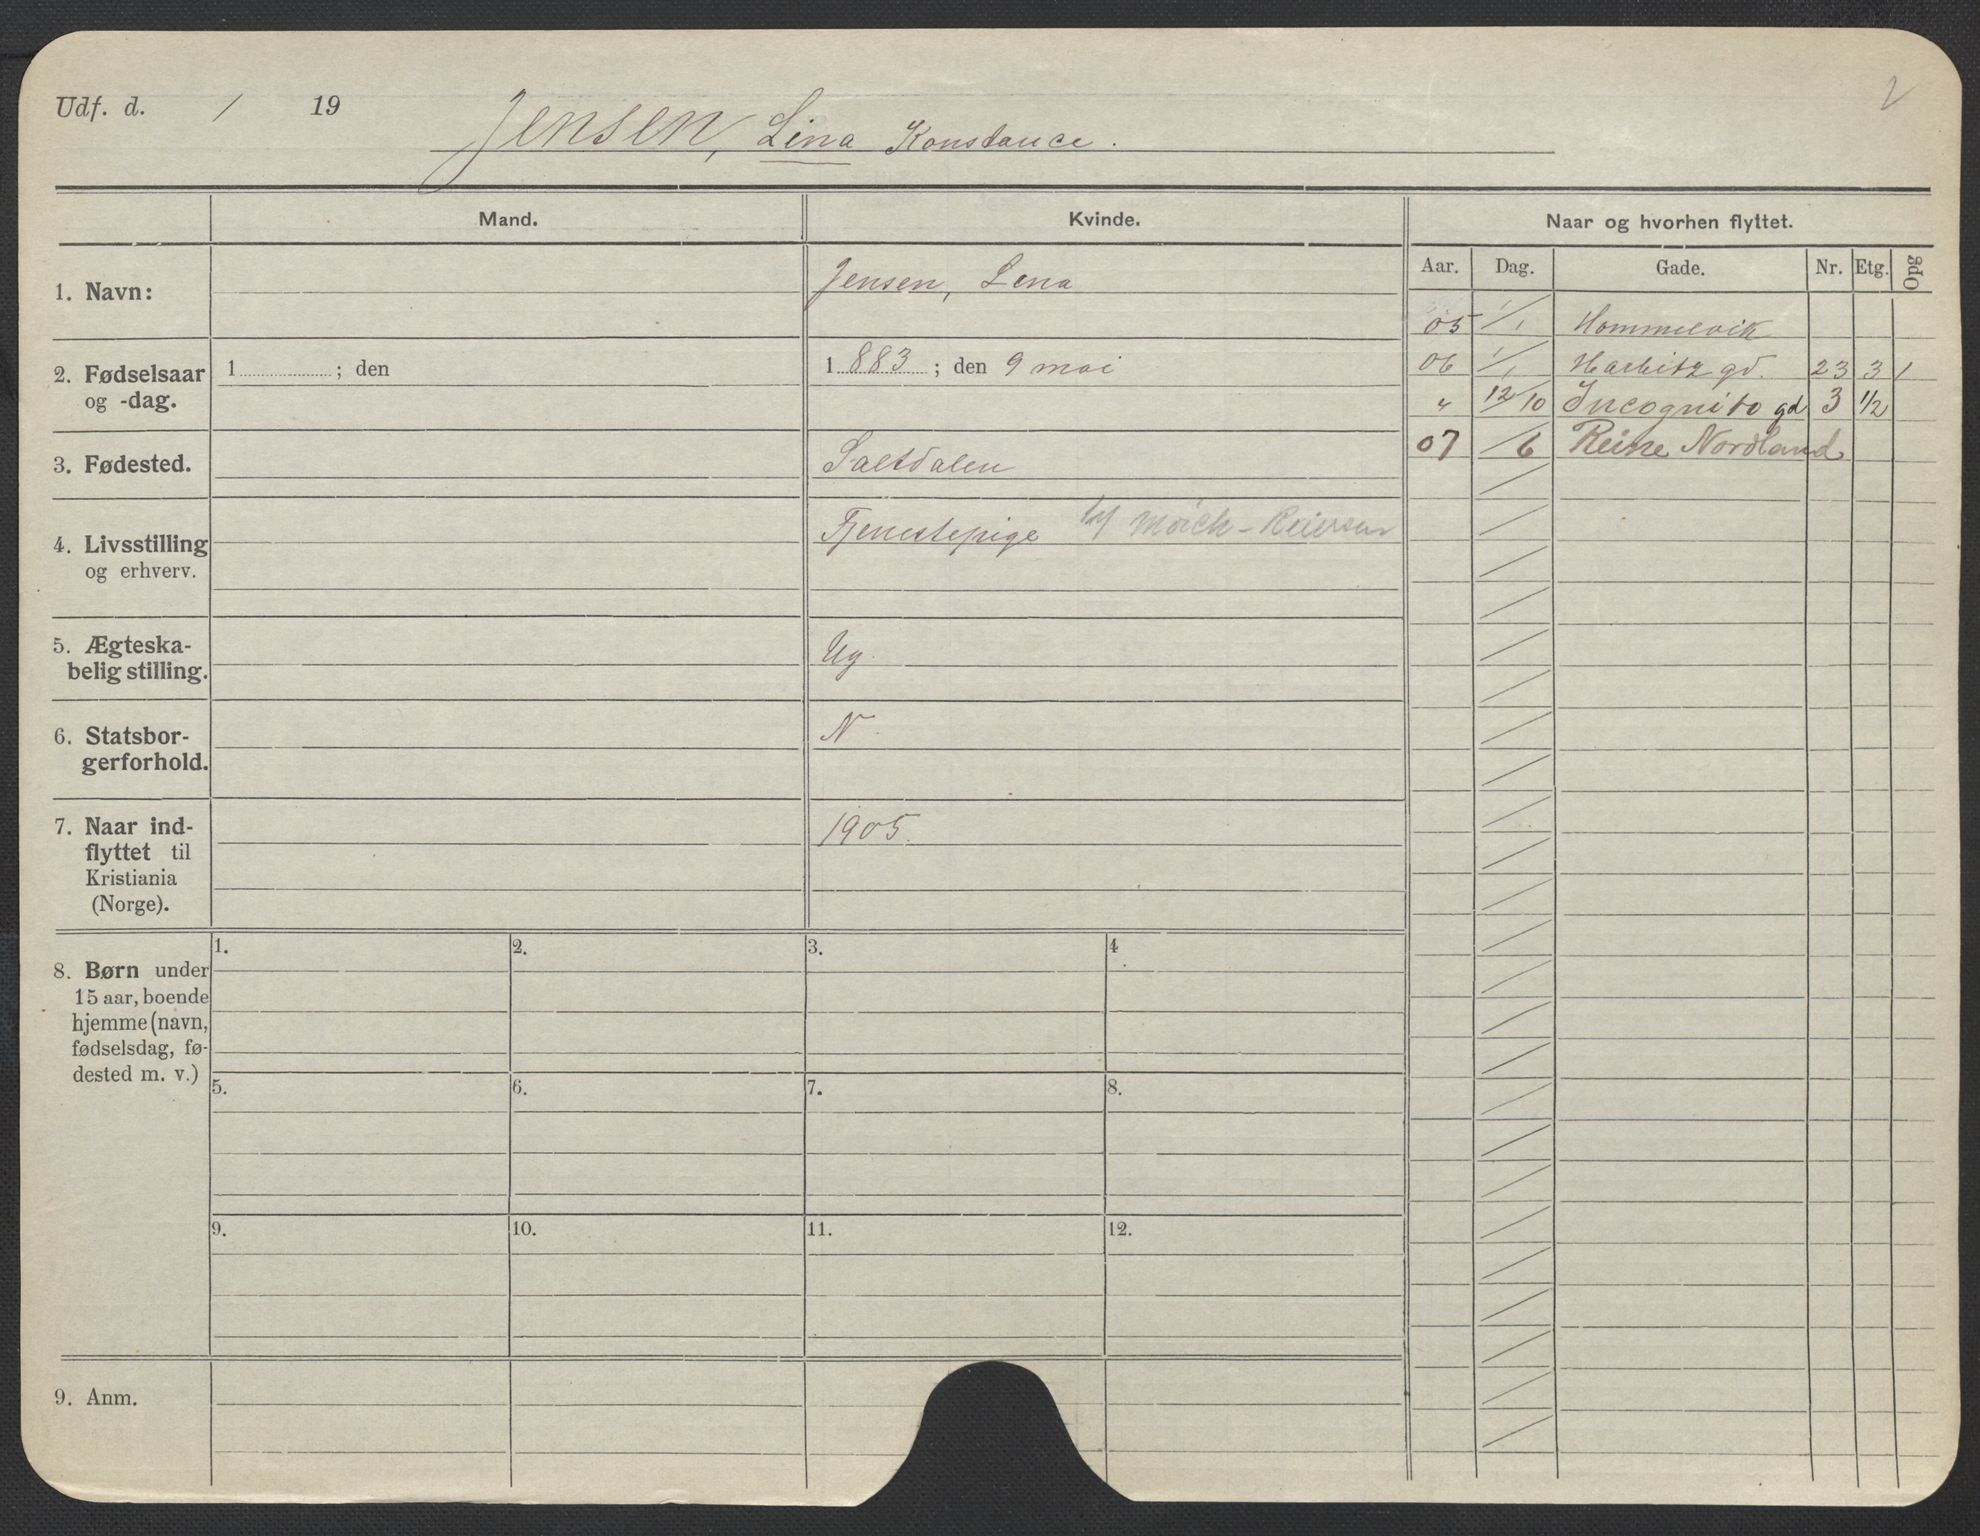 Udf. d. / 19
Jensen, Lina Konstance.
Mand. Kvinde. Naar og hvorhen flyttet.
Aar. Dag. Gade. Nr. Etg. Opg
1. Navn: Jensen, Lena
05 1/1 Hommelvik
06 1/1 Harbitz gd. 23 3 1
2. Fødselsaar
og -dag.
1 ; den
1 883 ; den 9 mai
" 12/10 Incognito gd 3 1/2
07 /6 Reine Nordland
3. Fødested. Saltdalen
4. Livsstilling
og erhverv.
Tjenestepige
5. Ægteska-
belig stilling.
Ug.
6. Statsbor-
gerforhold.
N.
7. Naar ind-
flyttet til
Kristiania
(Norge).
1905.
8. Børn under
15 aar, boende
hjemme (navn,
fødselsdag, fø-
dested m. v.)
1. 2. 3. 4
5. 6. 7. 8.
9. 10. 11. 12.
9. Anm.